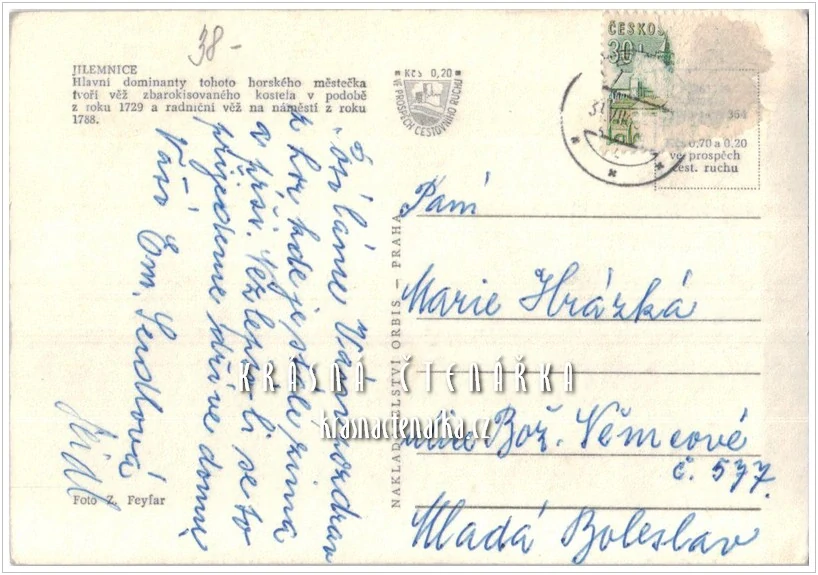 38-
JILEMNICE
Hlavní dominanty tohoto horského městečka
tvoří věž zbarokisovaného kostela v podobě
z roku 1729 a radniční věž na náměstí z roku
1788.
Kčs 0,20
VE PROSPĚCH CESTOVNÍHO RUCHU
ČESKO
30
364
Kčs 0,70 a 0,20
ve prospěch
cest. ruchu
Posíláme Vám pozdrav
z hor, kde je stále zima
a prší. Nezlepší-li se to
přijedeme dříve domů
Vaši Em. Seidlová
Seidl
Foto Z. Feyfar
NAKLADATELSTVÍ ORBIS — PRAHA
Paní
Marie Hrázká
Bož. Němcové
č. 577.
Mladá Boleslav
KRÁSNÁ ČTENÁŘKA
krasnactenarka.cz